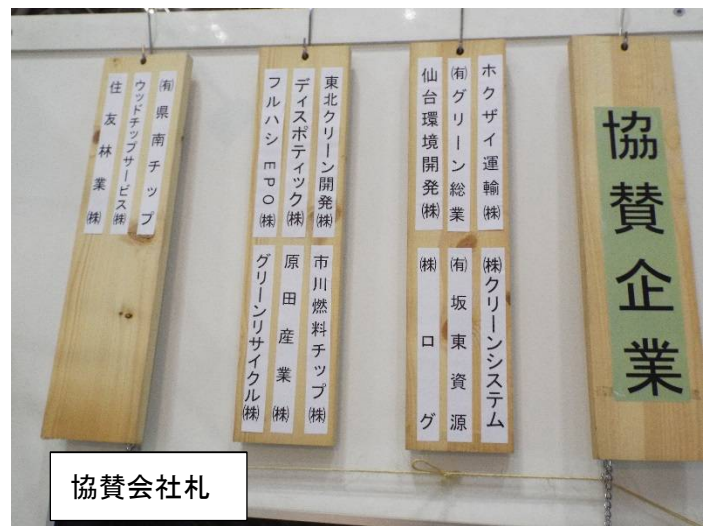 協賛企業
ホクザイ運輸㈱
㈲グリーン総業
仙台環境開発㈱
㈱クリーンシステム
㈲坂東資源
㈱ログ
東北クリーン開発㈱
ディスポティック㈱
フルハシEPO㈱
市川燃料チップ㈱
原田産業㈱
グリーンリサイクル㈱
㈲県南チップ
ウッドチップサービス㈱
住友林業㈱
協賛会社札